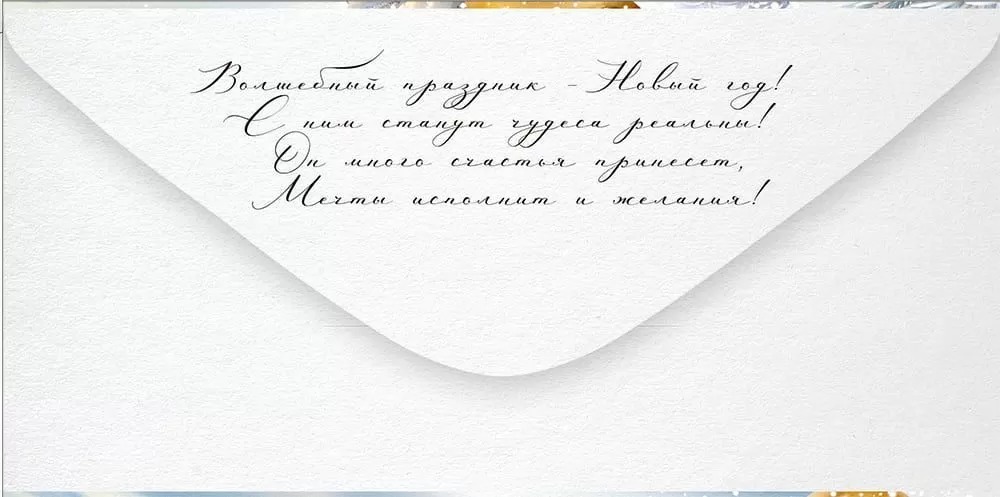 Волшебный праздник - Новый год!
С ним станут чудеса реальны!
Он много счастья принесет,
Мечты исполнит и желания!